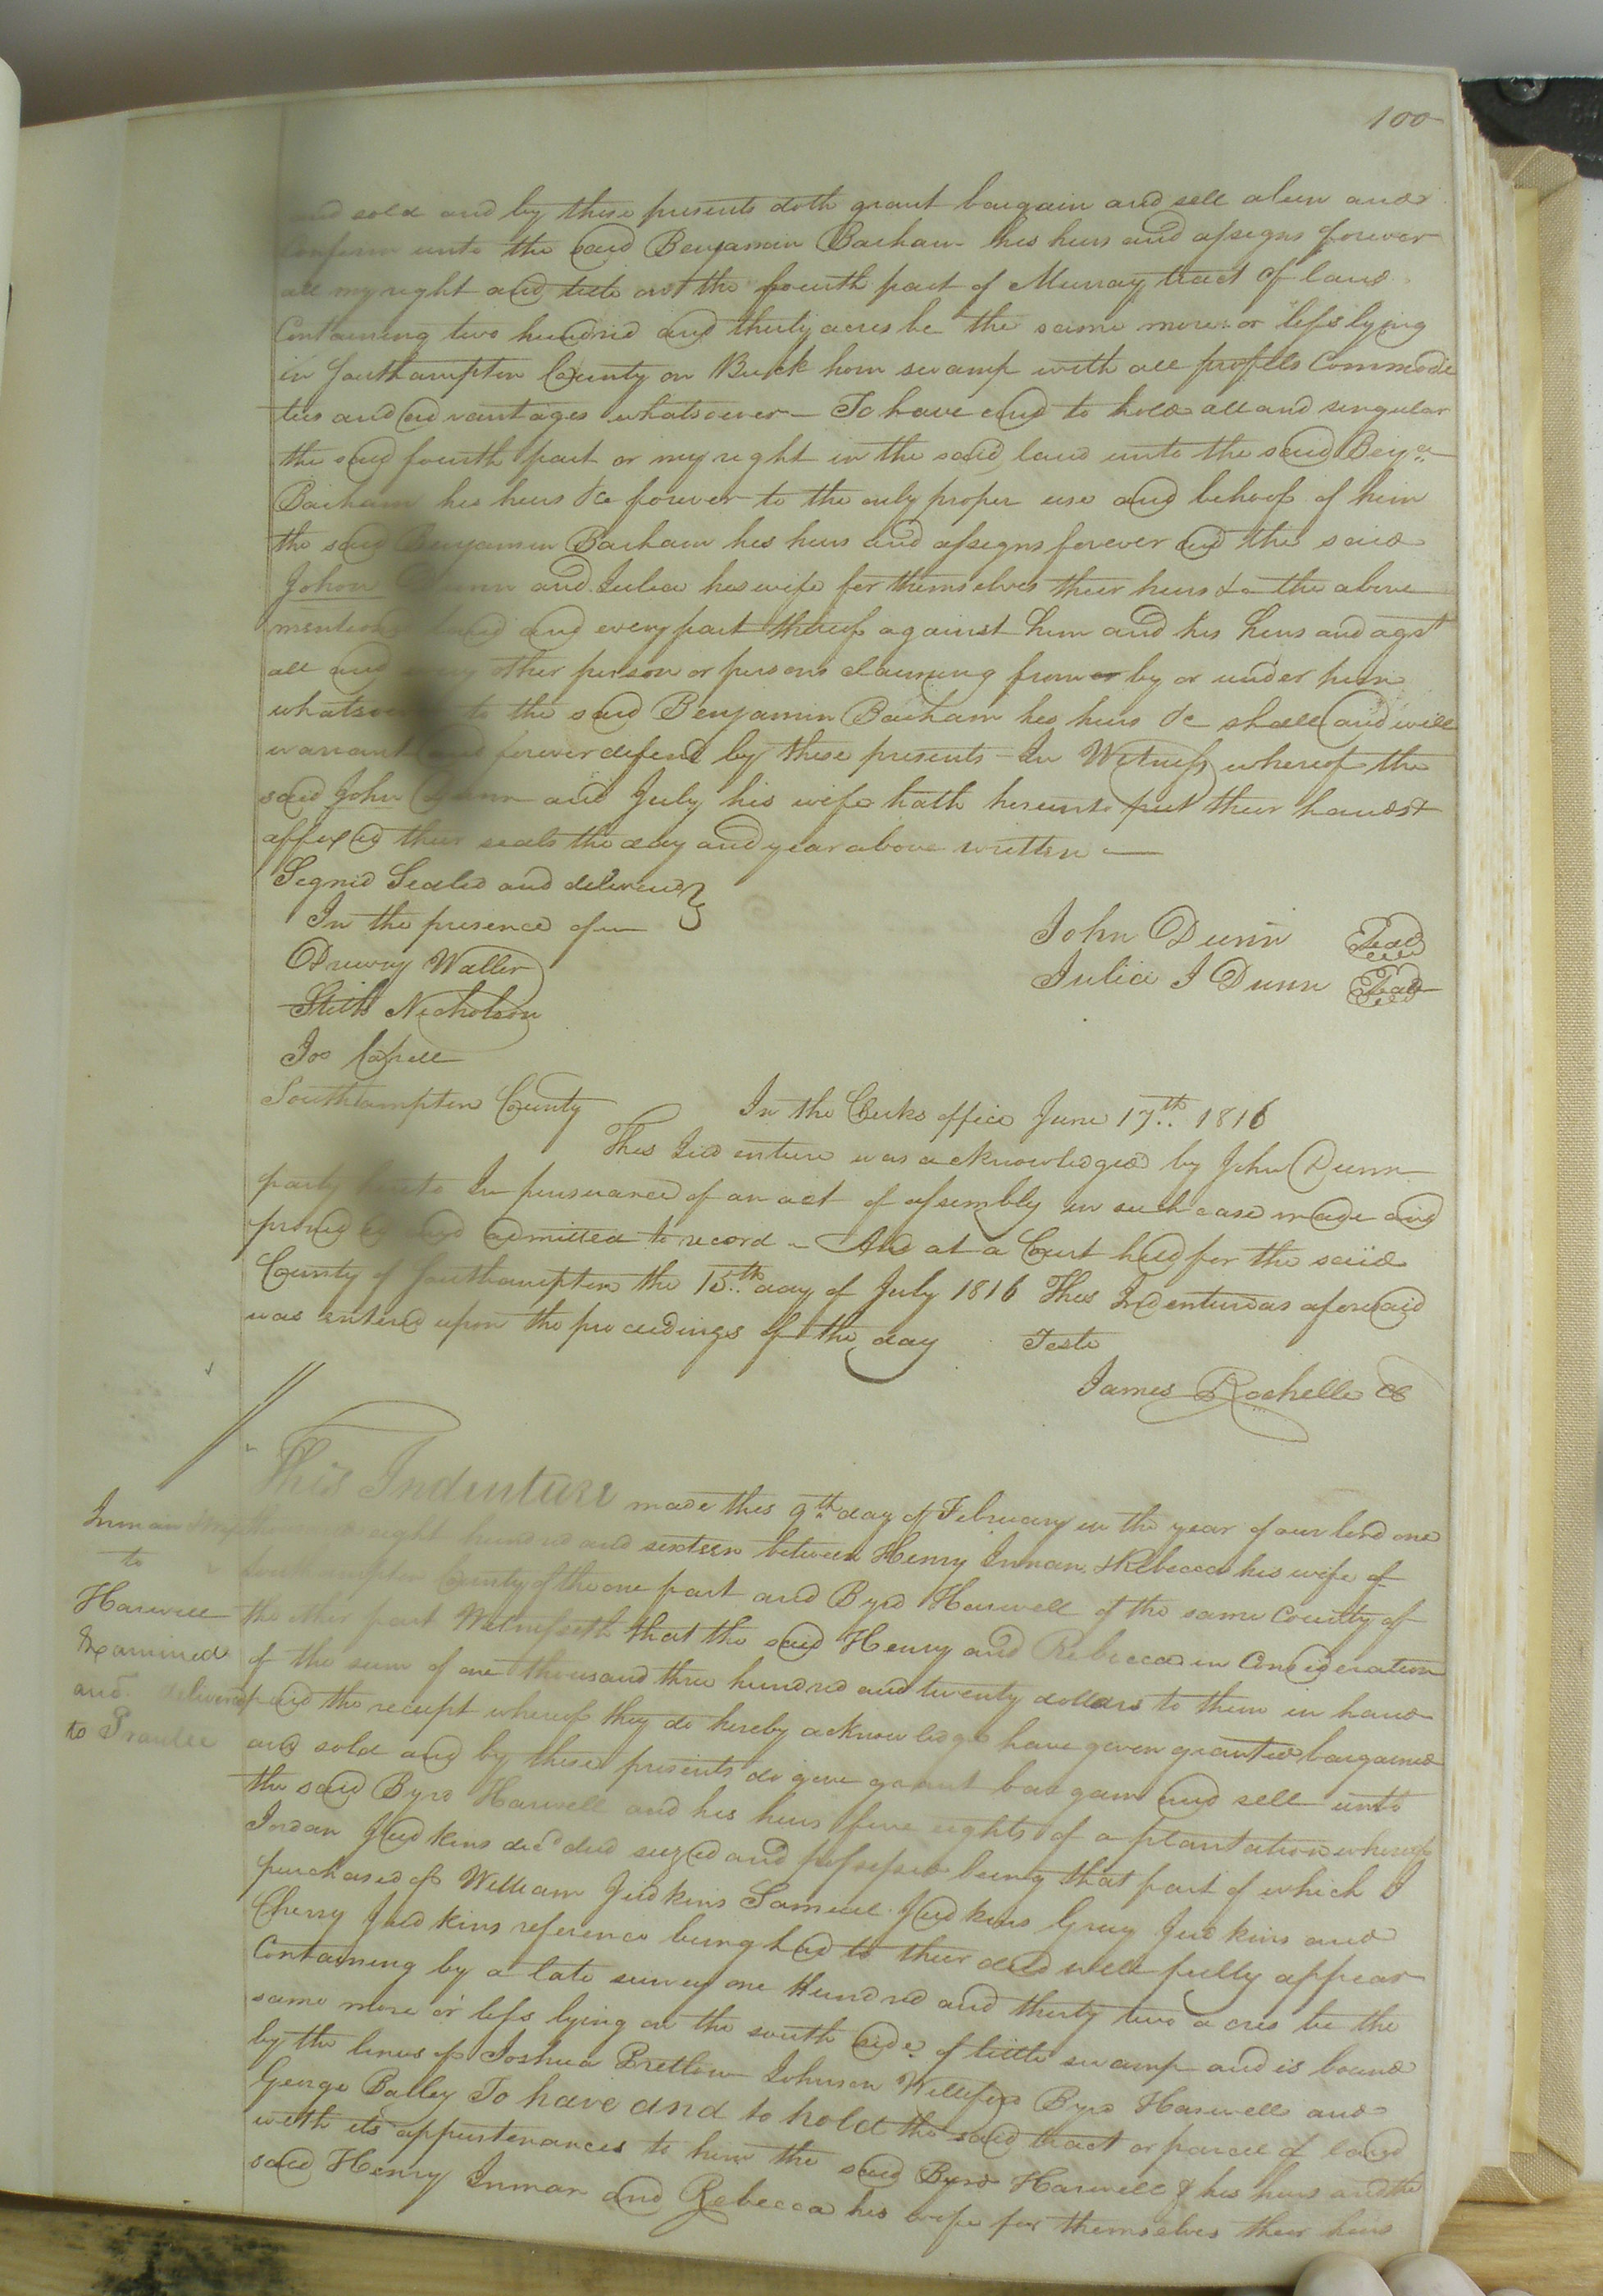 100
and sold and by these presents doth grant bargain and sell alien and
Confirm unto the said Benjamin Barham his heirs and assigns forever
all my right and title and the fourth part of Murray tract of land
Containing two hundred and thirty acres be the same more or less lying
in Southampton County on Buck horn swamp with all profits Commodi
ties and advantages whatsoever – To have and to hold all and singular
the said fourth part or my right in the said land unto the said Benja.
Barham his heirs &c forever to the only proper use and behoof of him
the said Benjamin Barham his heirs and assigns forever and the said
Johon Dunn and Julia his wife for themselves their heirs &c the above
mentioned land and every part thereof against him and his heirs and agst
all and every other person or persons claiming from or by or under him
whatsoever to the said Benjamin Barham his heirs &c shall and will
warrant and forever defend by these presents – In Witness whereof the
said John Dunn and July his wife hath hereunto put their hands &
affixed their seals the day and year above written –
Signed Sealed and delivered }
In the presence of –
Druwry Waller
Stith Nicholson
Jos Capell
John Dunn Seal
Julia J Dunn Seal
Southampton County In the Clerks office June 17th 1816
This Indenture was acknowledged by John Dunn
party hereto In pursuance of an act of assembly in such case made and
provided and admitted to record – And at a Court held for the said
County of Southampton the 15th day of July 1816 This Indenture as aforesaid
was entered upon the proceedings of the day Teste
James Rochelle CC
Inman
to
Harwell
Examined
and delivered
to
This Indenture made this 9th day of February in the year of our lord one
eight hundred and sixteen between Henry Inman & Rebecca his wife of
Southampton County of the one part and Byrd Harwell of the same County of
the other part Witnesseth that the said Henry and Rebecca in Consideration
of the sum of one thousand three hundred and twenty dollars to them in hand
paid the receipt whereof they do hereby acknowledge have given granted bargained
and sold and by these presents do give grant bargain and sell unto
the said Byrd Harwell and his heirs five eights of a plantation whereof
Jordan Judkins decd died seized and possessed being that part of which I
purchased of William Judkins Samuel Judkins Gray Judkins and
Cherry Judkins reference being had to their deed will fully appear
Containing by a late survey one Hundred and thirty two acres be the
same more or less lying on the south side of little swamp and is bound
by the lines of Joshua Pretlow Johnson Williford Byrd Harwell and
George Bailey To have and to hold the said tract or parcel of land
with its appurtenances to him the said Byrd Harwell & his heirs and the
said Henry Inman and Rebecca his wife for themselves their heirs